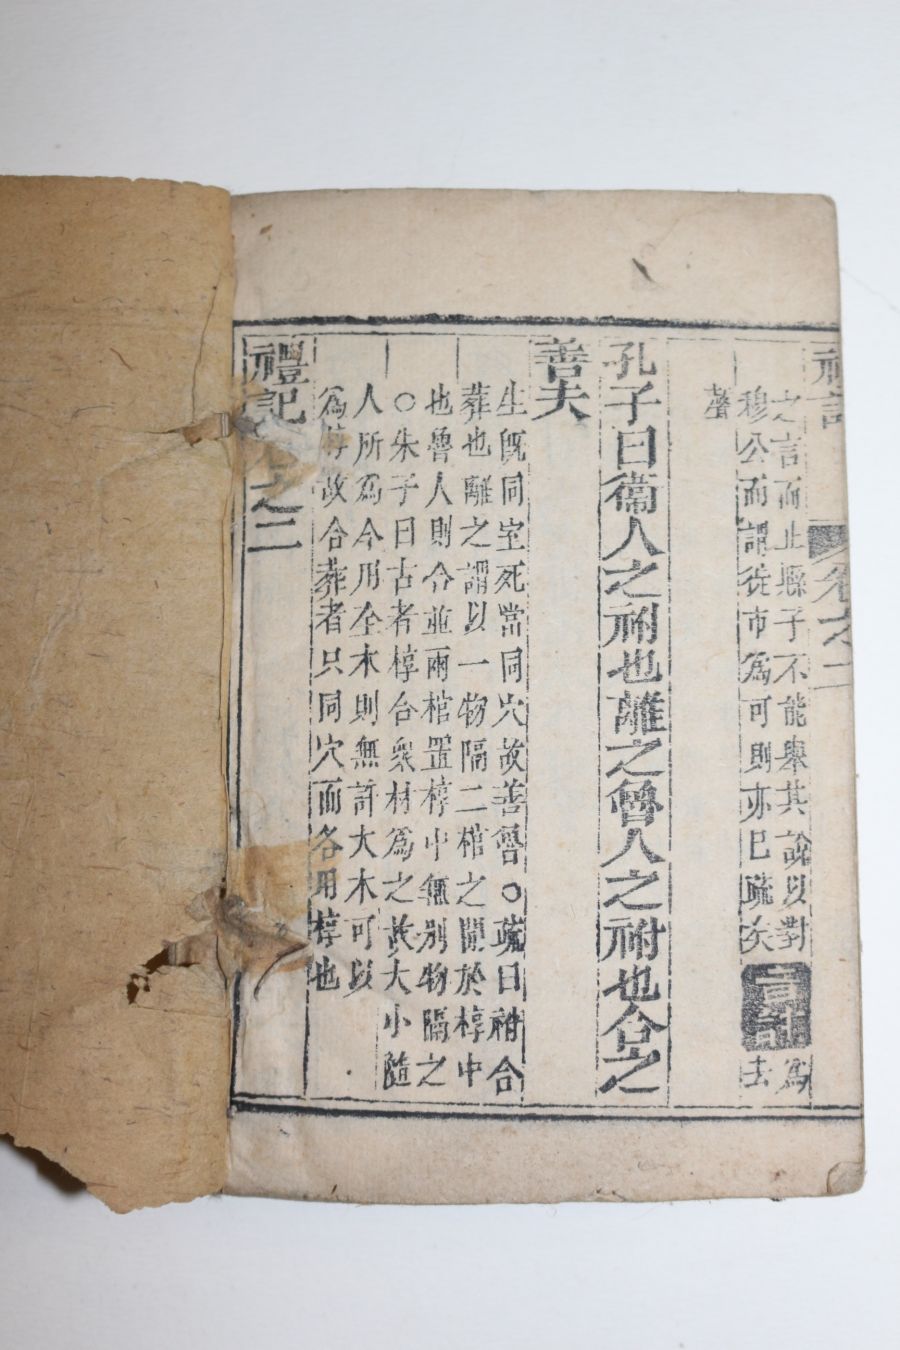 禮記 卷之二
之言而止縣子不能舉其說以對
穆公而謂徙市爲可則亦已疏矣 音註 爲去
聲
孔子曰衞人之祔也離之魯人之祔也合之
善夫
生旣同室死當同穴故善魯○疏曰祔合
葬也離之謂以一物隔二棺之間於椁中
也魯人則合並兩棺置椁中無別物隔之
○朱子曰古者椁合衆材爲之故大小隨
人所爲今用全木則無許大木可以
爲椁故合葬者只同穴而各用椁也
禮記 之二